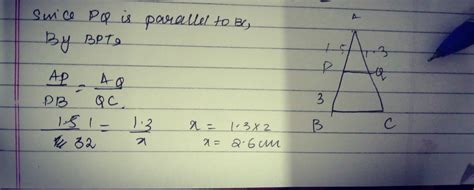 Since PQ is parallel to BC,
By BPT,
AP/PB = AQ/QC
1.5 1/3 2 = 1.3/x
x = 1.3×2
x = 2.6cm
A
1.5 1.3
P Q
3
B C